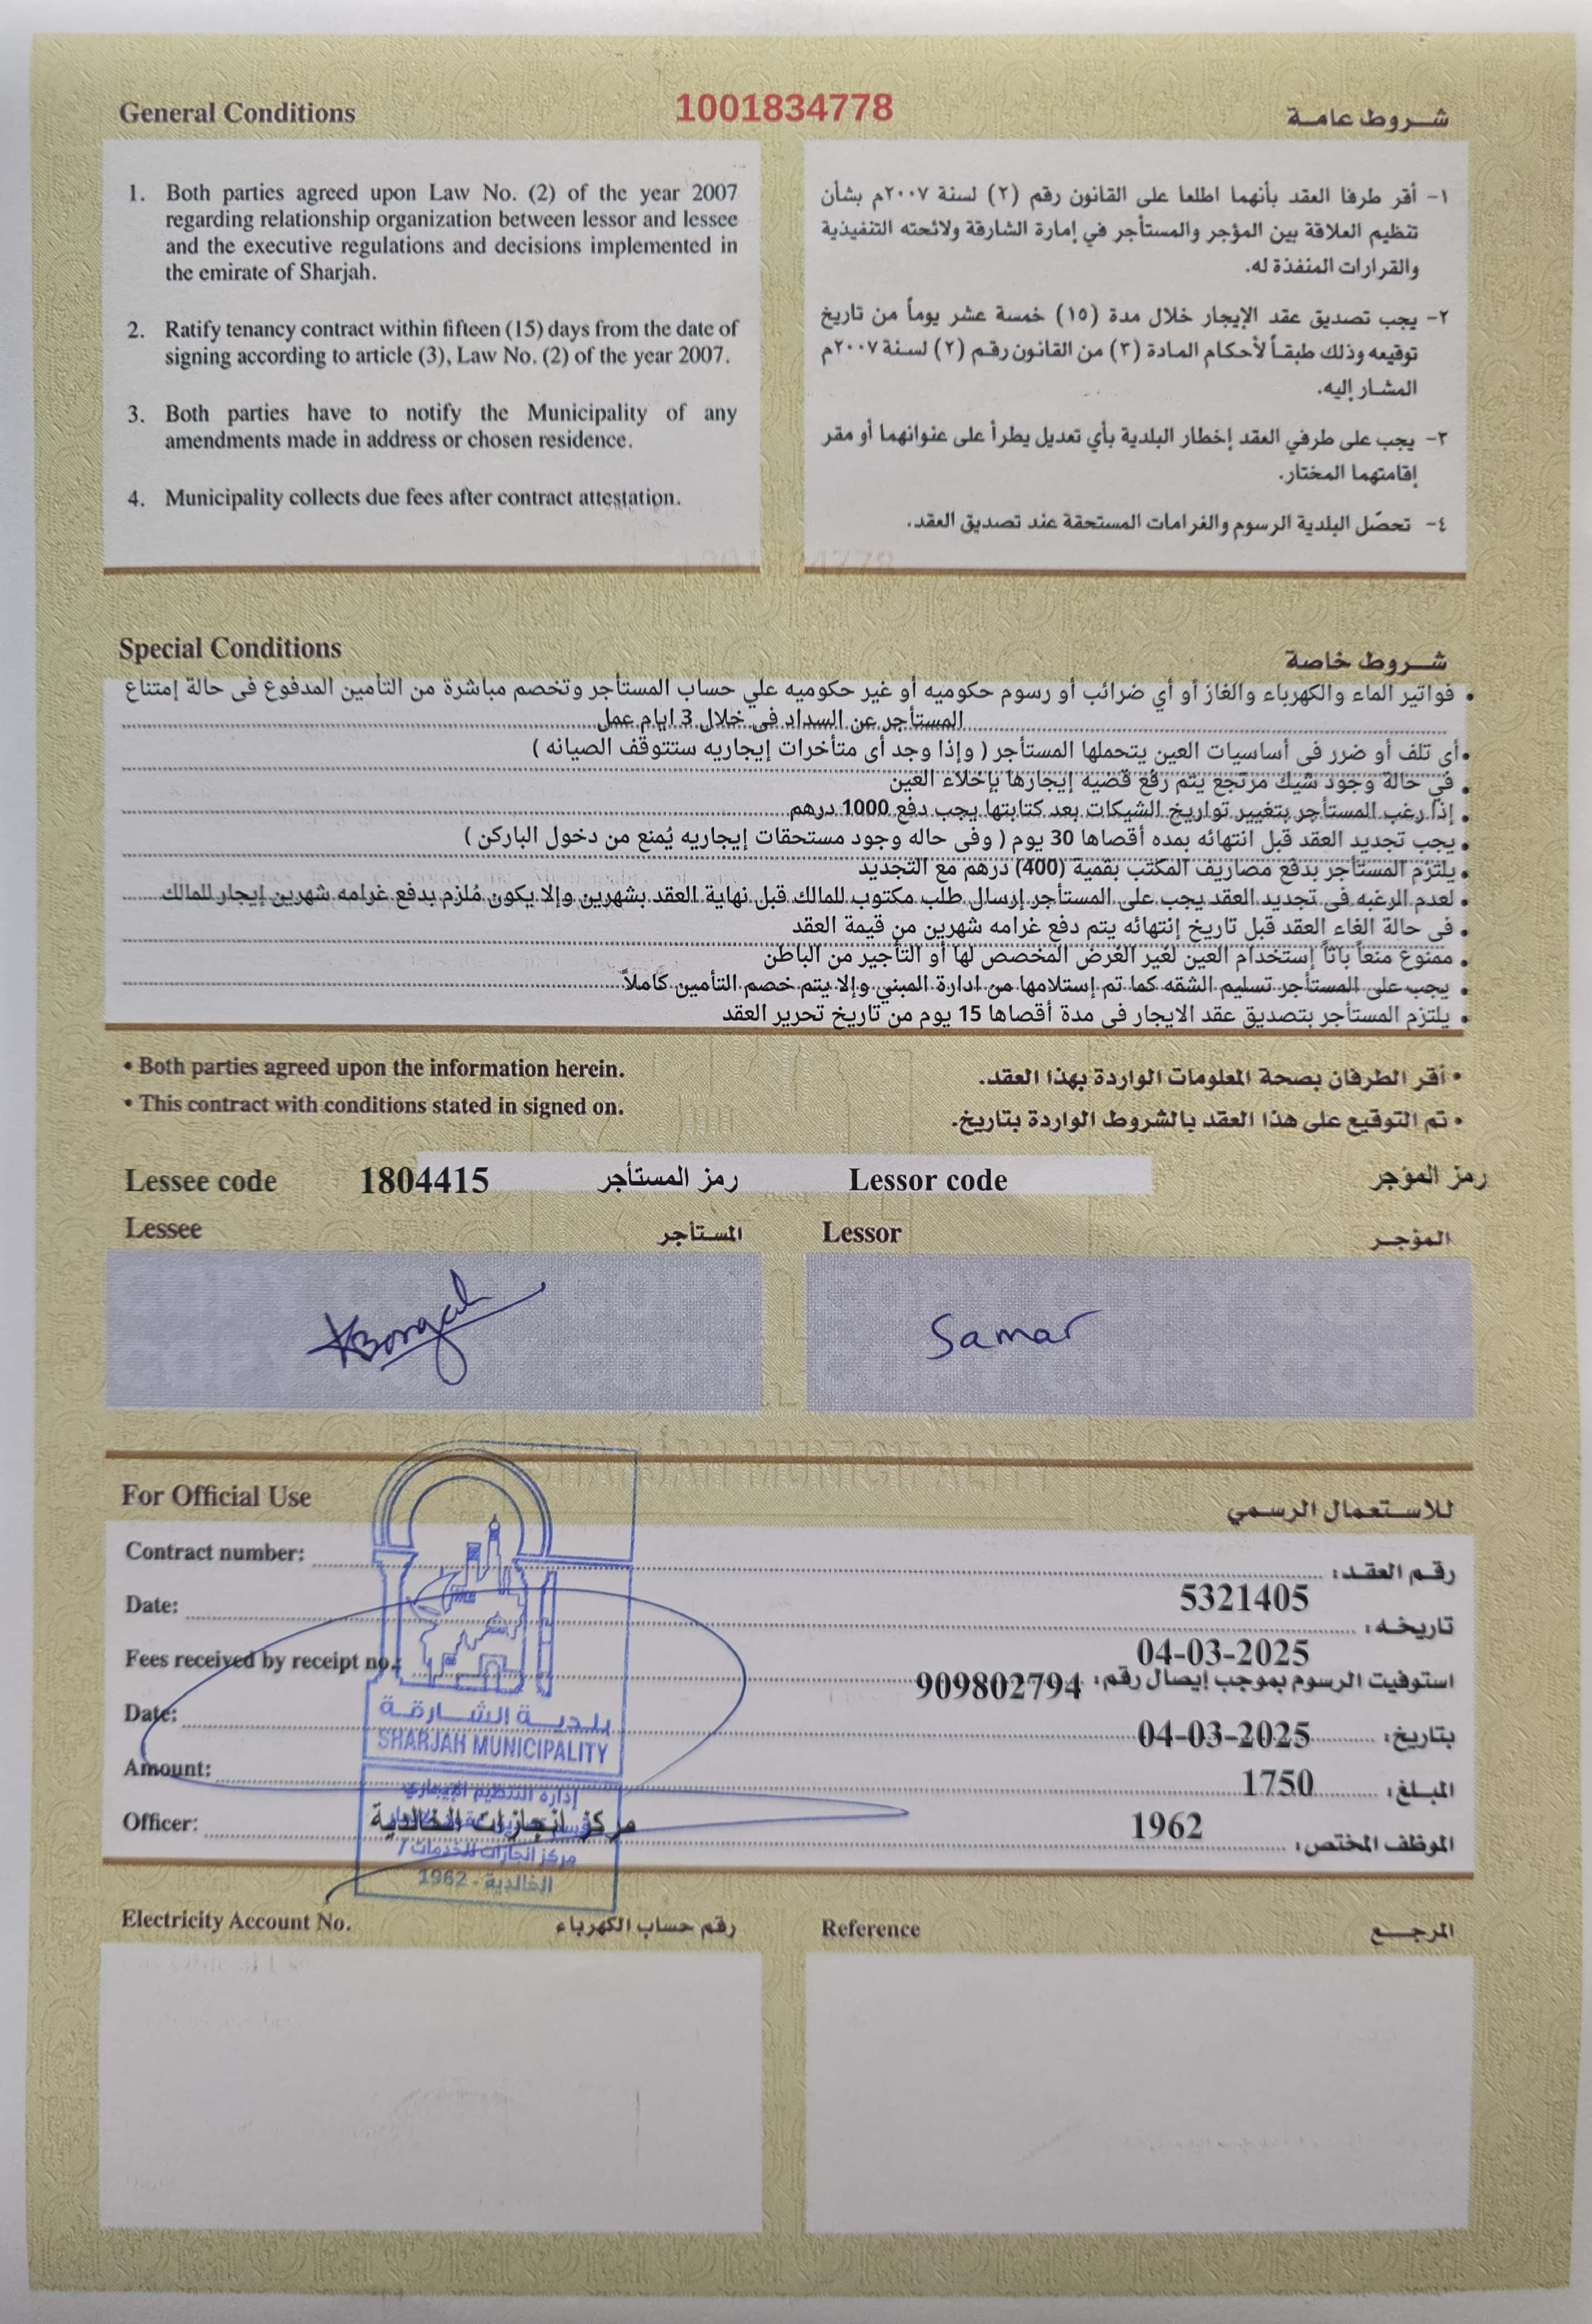 General Conditions
1001834778
شروط عامة
1. Both parties agreed upon Law No. (2) of the year 2007
regarding relationship organization between lessor and lessee
and the executive regulations and decisions implemented in
the emirate of Sharjah.
2. Ratify tenancy contract within fifteen (15) days from the date of
signing according to article (3), Law No. (2) of the year 2007.
3. Both parties have to notify the Municipality of any
amendments made in address or chosen residence.
4. Municipality collects due fees after contract attestation.
١- أقر طرفا العقد بأنهما اطلعا على القانون رقم (٢) لسنة ٢٠٠٧م بشأن
تنظيم العلاقة بين المؤجر والمستأجر في إمارة الشارقة ولائحته التنفيذية
والقرارات المنفذة له.
٢- يجب تصديق عقد الإيجار خلال مدة (١٥) خمسة عشر يوماً من تاريخ
توقيعه وذلك طبقاً لأحكام المادة (٣) من القانون رقم (٢) لسنة ٢٠٠٧م
المشار إليه.
٣- يجب على طرفي العقد إخطار البلدية بأي تعديل يطرأ على عنوانهما أو مقر
إقامتهما المختار.
٤- تحصّل البلدية الرسوم والغرامات المستحقة عند تصديق العقد.
Special Conditions
شروط خاصة
• فواتير الماء والكهرباء والغاز أو أي ضرائب أو رسوم حكوميه أو غير حكوميه علي حساب المستأجر وتخصم مباشرة من التأمين المدفوع فى حالة إمتناع
المستأجر عن السداد فى خلال 3 ايام عمل
• أى تلف أو ضرر فى أساسيات العين يتحملها المستأجر ( وإذا وجد أى متأخرات إيجاريه ستتوقف الصيانه )
• في حالة وجود شيك مرتجع يتم رفع قضيه إيجارها بإخلاء العين
• إذا رغب المستأجر بتغيير تواريخ الشيكات بعد كتابتها يجب دفع 1000 درهم
• يجب تجديد العقد قبل انتهائه بمده أقصاها 30 يوم ( وفى حاله وجود مستحقات إيجاريه يُمنع من دخول الباركن )
• يلتزم المستأجر بدفع مصاريف المكتب بقمية (400) درهم مع التجديد
• لعدم الرغبه فى تجديد العقد يجب على المستأجر إرسال طلب مكتوب للمالك قبل نهاية العقد بشهرين وإلا يكون مُلزم بدفع غرامه شهرين إيجار للمالك
• فى حالة الغاء العقد قبل تاريخ إنتهائه يتم دفع غرامه شهرين من قيمة العقد
• ممنوع منعاً باتاً إستخدام العين لغير الغرض المخصص لها أو التأجير من الباطن
• يجب على المستأجر تسليم الشقه كما تم إستلامها من ادارة المبني وإلا يتم خصم التأمين كاملاً
• يلتزم المستأجر بتصديق عقد الايجار فى مدة أقصاها 15 يوم من تاريخ تحرير العقد
• Both parties agreed upon the information herein.
• This contract with conditions stated in signed on.
• أقر الطرفان بصحة المعلومات الواردة بهذا العقد.
• تم التوقيع على هذا العقد بالشروط الواردة بتاريخ.
Lessee code 1804415 رمز المستأجر Lessor code رمز المؤجر
Lessee المستأجر Lessor المؤجر
Samar
SHARJAH MUNICIPALITY
For Official Use
للاستعمال الرسمي
Contract number: رقم العقد:
5321405
Date: تاريخه:
04-03-2025
Fees received by receipt no.: 909802794 استوفيت الرسوم بموجب إيصال رقم:
Date: 04-03-2025 بتاريخ:
Amount: 1750 المبلغ:
Officer: مركز انجازات الخالدية 1962 الموظف المختص:
بلدية الشارقة
SHARJAH MUNICIPALITY
إدارة التنظيم الإيجاري
مركز انجازات للخدمات /
الخالدية - 1962
Electricity Account No. رقم حساب الكهرباء
Reference المرجع